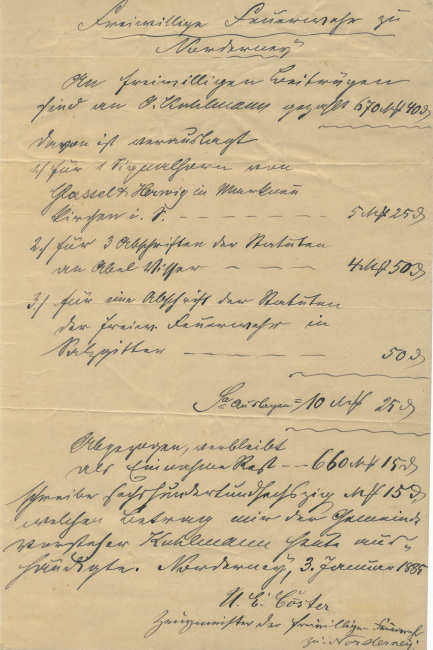 Freiwillige Feuerwehr zu
Norderney
An freiwilligen Beiträgen
sind an Kuhlmann gezahlt 670 M 40 d
Davon ist verauslagt
1./ für 1 Signalhorn von
Glassel & Herwig in Markneu
kirchen i. S. — — — — 5 M 25 d
2./ für 3 Abschriften der Statuten
an Abel Visser — — — 4 M 50 d
3./ für eine Abschrift der Statuten
der freiw. Feuerwehr in
Salzgitter — — — — 50 d
Sa Auslagen = 10 M 25 d
Abgezogen, verbleibt
als Einnahme Rest — — 660 M 15 d
schreibe sechshundertundsechszig M 15 d
welchen Betrag mir der Gemeinde
vorsteher Kuhlmann heute aus-
händigte. Norderney, 3. Januar 1885
Cöster
Zeugmeister der freiwilligen Feuerwehr
zu Norderney.